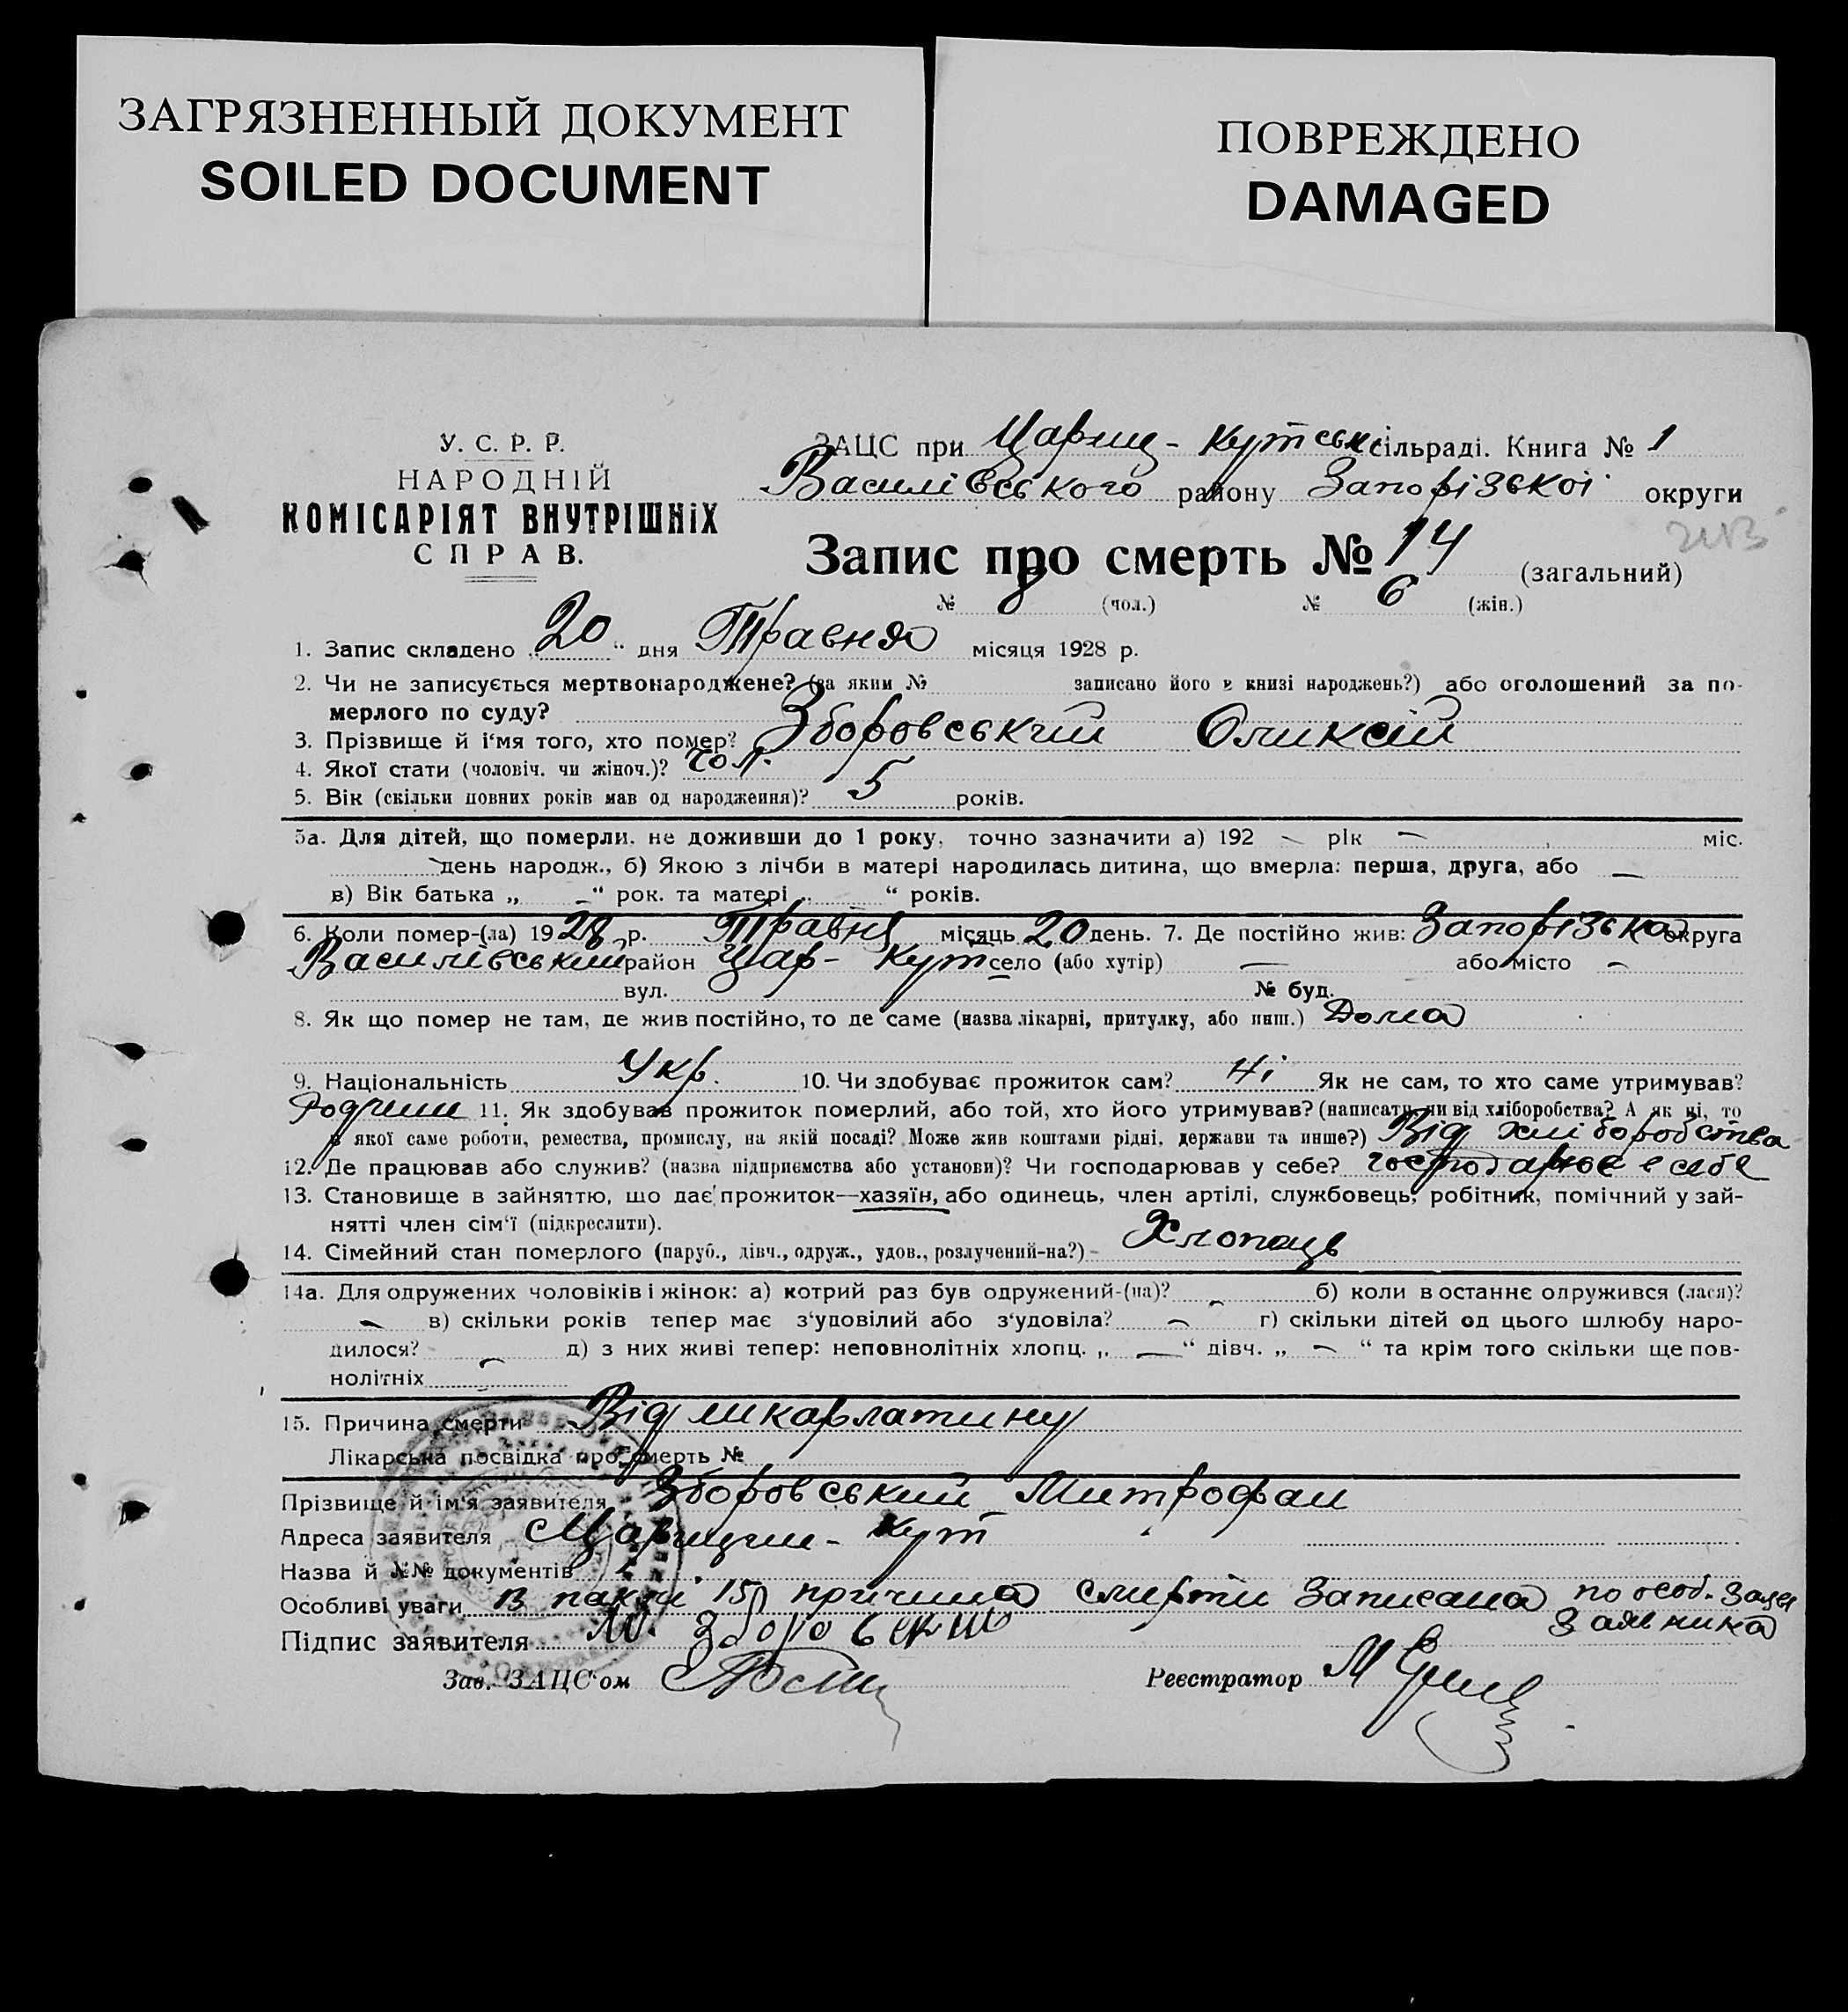 ЗАГРЯЗНЕННЫЙ ДОКУМЕНТ
SOILED DOCUMENT
ПОВРЕЖДЕНО
DAMAGED
У. С. Р. Р.
НАРОДНІЙ
КОМІСАРІЯТ ВНУТРІШНІХ
СПРАВ.
ЗАЦС при Цариц-Кутські сільраді. Книга № 1
Василівського району Запорізької округи
Запис про смерть № 14 (загальний)
№ 8 (чол.) № 6 (жін.)
1. Запис складено „20“ дня Травня місяця 1928 р.
2. Чи не записується мертвонароджене? (за яким № записано його в книзі народжень?) або оголошений за по-
мерлого по суду?
3. Прізвище й і'мя того, хто помер? Зборовський Оликсій
4. Якої стати (чоловіч. чи жіноч.)? чол.
5. Вік (скільки повних років мав од народження)? 5 років.
5а. Для дітей, що померли, не доживши до 1 року, точно зазначити а) 192 – рік – міс.
– день народж., б) Якою з лічби в матері народилась дитина, що вмерла: перша, друга, або —
в) Вік батька „ – “ рок. та матері „ “ років.
6. Коли помер-(ла) 1928 р. Травня місяць 20 день. 7. Де постійно жив: Запорізька округа
Василівський район Цар-Кут село (або хутір) — або місто –
вул. № буд.
8. Як що помер не там, де жив постійно, то де саме (назва лікарні, притулку, або инш.) Дома
9. Національність Укр. 10. Чи здобуває прожиток сам? Ні Як не сам, то хто саме утримував?
Родини 11. Як здобував прожиток померлий, або той, хто його утримував? (написати, чи від хліборобства? А як ні, то
з якої саме роботи, ремества, промислу, на якій посаді? Може жив коштами рідні, держави та инше?) Від хліборобства
12. Де працював або служив? (назва підприємства або установи)? Чи господарював у себе? господарює в себе
13. Становище в зайняттю, що дає прожиток—хазяїн, або одинець, член артілі, службовець, робітник, помічний у зай-
нятті член сім'ї (підкреслити).
14. Сімейний стан померлого (паруб., дівч., одруж., удов., розлучений-на?) - Хлопець
14а. Для одружених чоловіків і жінок: а) котрий раз був одружений-(на)? – б) коли в останнє одружився (лася)?
– в) скільки років тепер має з'удовілий або з'удовіла? – г) скільки дітей од цього шлюбу наро-
дилося? – д) з них живі тепер: неповнолітніх хлопц. „ — “ дівч. „ – “ та крім того скільки ще пов-
нолітніх
15. Причина смерти Від шкарлатину
Лікарська посвідка про смерть №
Прізвище й ім'я заявителя Зборовський Митрофан
Адреса заявителя Царицин-Кут
Назва й №№ документів
Особливі уваги В пакті 15 причина смерти записана по особ.
заявника
Підпис заявителя М. Зборовский
Зав. ЗАЦС'ом
Реєстратор М